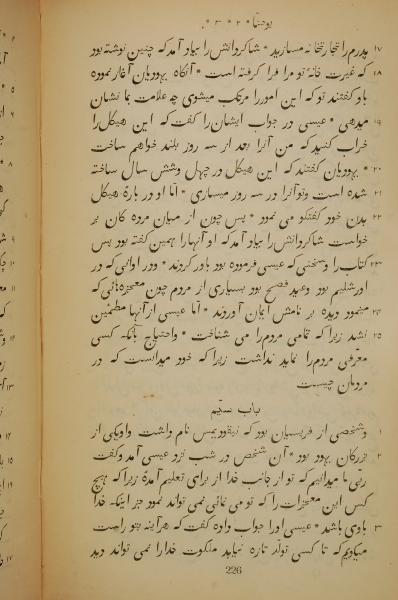 یوحنا * ۲ * ۳ *
۱۷ پدرم را تجارتخانه مسازید * شاکردانش را بیاد آمد که چنین نوشته بود
۱۸ که غیرت خانهٔ تو مرا فرا کرفته است * آنکاه یهودیان آغاز نموده
باو کفتند تو که این امور را مرتکب میشوی چه علامت بما نشان
۱۹ میدهی * عیسی در جواب ایشان را کفت که این هیکل را
خراب کنید که من آنرا بعد از سه روز بلند خواهم ساخت
۲۰ * یهودیان کفتند که این هیکل در چهل وشش سال ساخته
۲۱ شده است وتو آنرا در سه روز میسازی * اما او در بارهٔ هیکل
۲۲ بدن خود کفتکو می نمود * پس چون از میان مرده کان بر
خواست شاکردانش را بیاد آمد که او آنها را همین کفته بود پس
۲۳ کتاب را وسخنی که عیسی فرموده بود باور کردند * ودر اوانی که در
اورشلیم بود وعید فصح بود بسیاری از مردم چون معجزه هائی که
۲۴ مینمود دیده بر نامش ایمان آوردند * اما عیسی از آنها مطمئین
۲۵ نشد زیرا که تمامی مردم را می شناخت * واحتیاج بآنکه کسی
معرفی مردم را نماید نداشت زیرا که خود میدانست که در
مردمان چیست
باب سیّم
۱ وشخصی از فریسیان بود که نیقودیمس نام داشت واو یکی از
۲ بزرکان یهود بود * آن شخص در شب نزد عیسی آمد وکفت
ربّی ما میدانیم که تو از جانب خدا از برای تعلیم آمدهٔ زیرا که هیچ
کس این معجزات را که تو می نمائی نمی تواند نمود جز اینکه خدا
۳ باوی باشد * عیسی اورا جواب داده کفت که هرآینه بتو راست
میکویم که تا کسی تولد تازه نیابد ملکوت خدارا نمی تواند دید
226